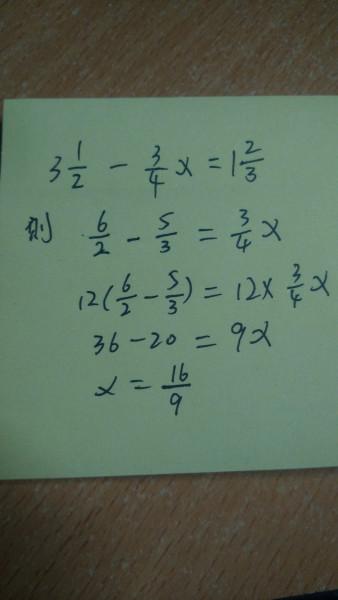 3 1/2 - 3/4 x = 1 2/3
则 6/2 - 5/3 = 3/4 x
12(6/2 - 5/3) = 12× 3/4 x
36 - 20 = 9x
x = 16/9